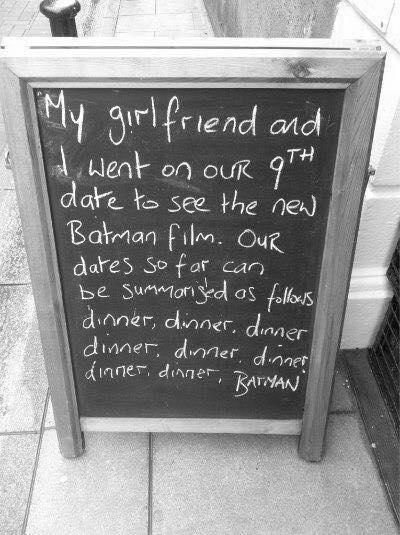 My girlfriend and
I went on our 9TH
date to see the new
Batman film. Our
dates so far can
be summarised as follows
dinner, dinner, dinner
dinner, dinner, dinner
dinner, dinner, BATMAN